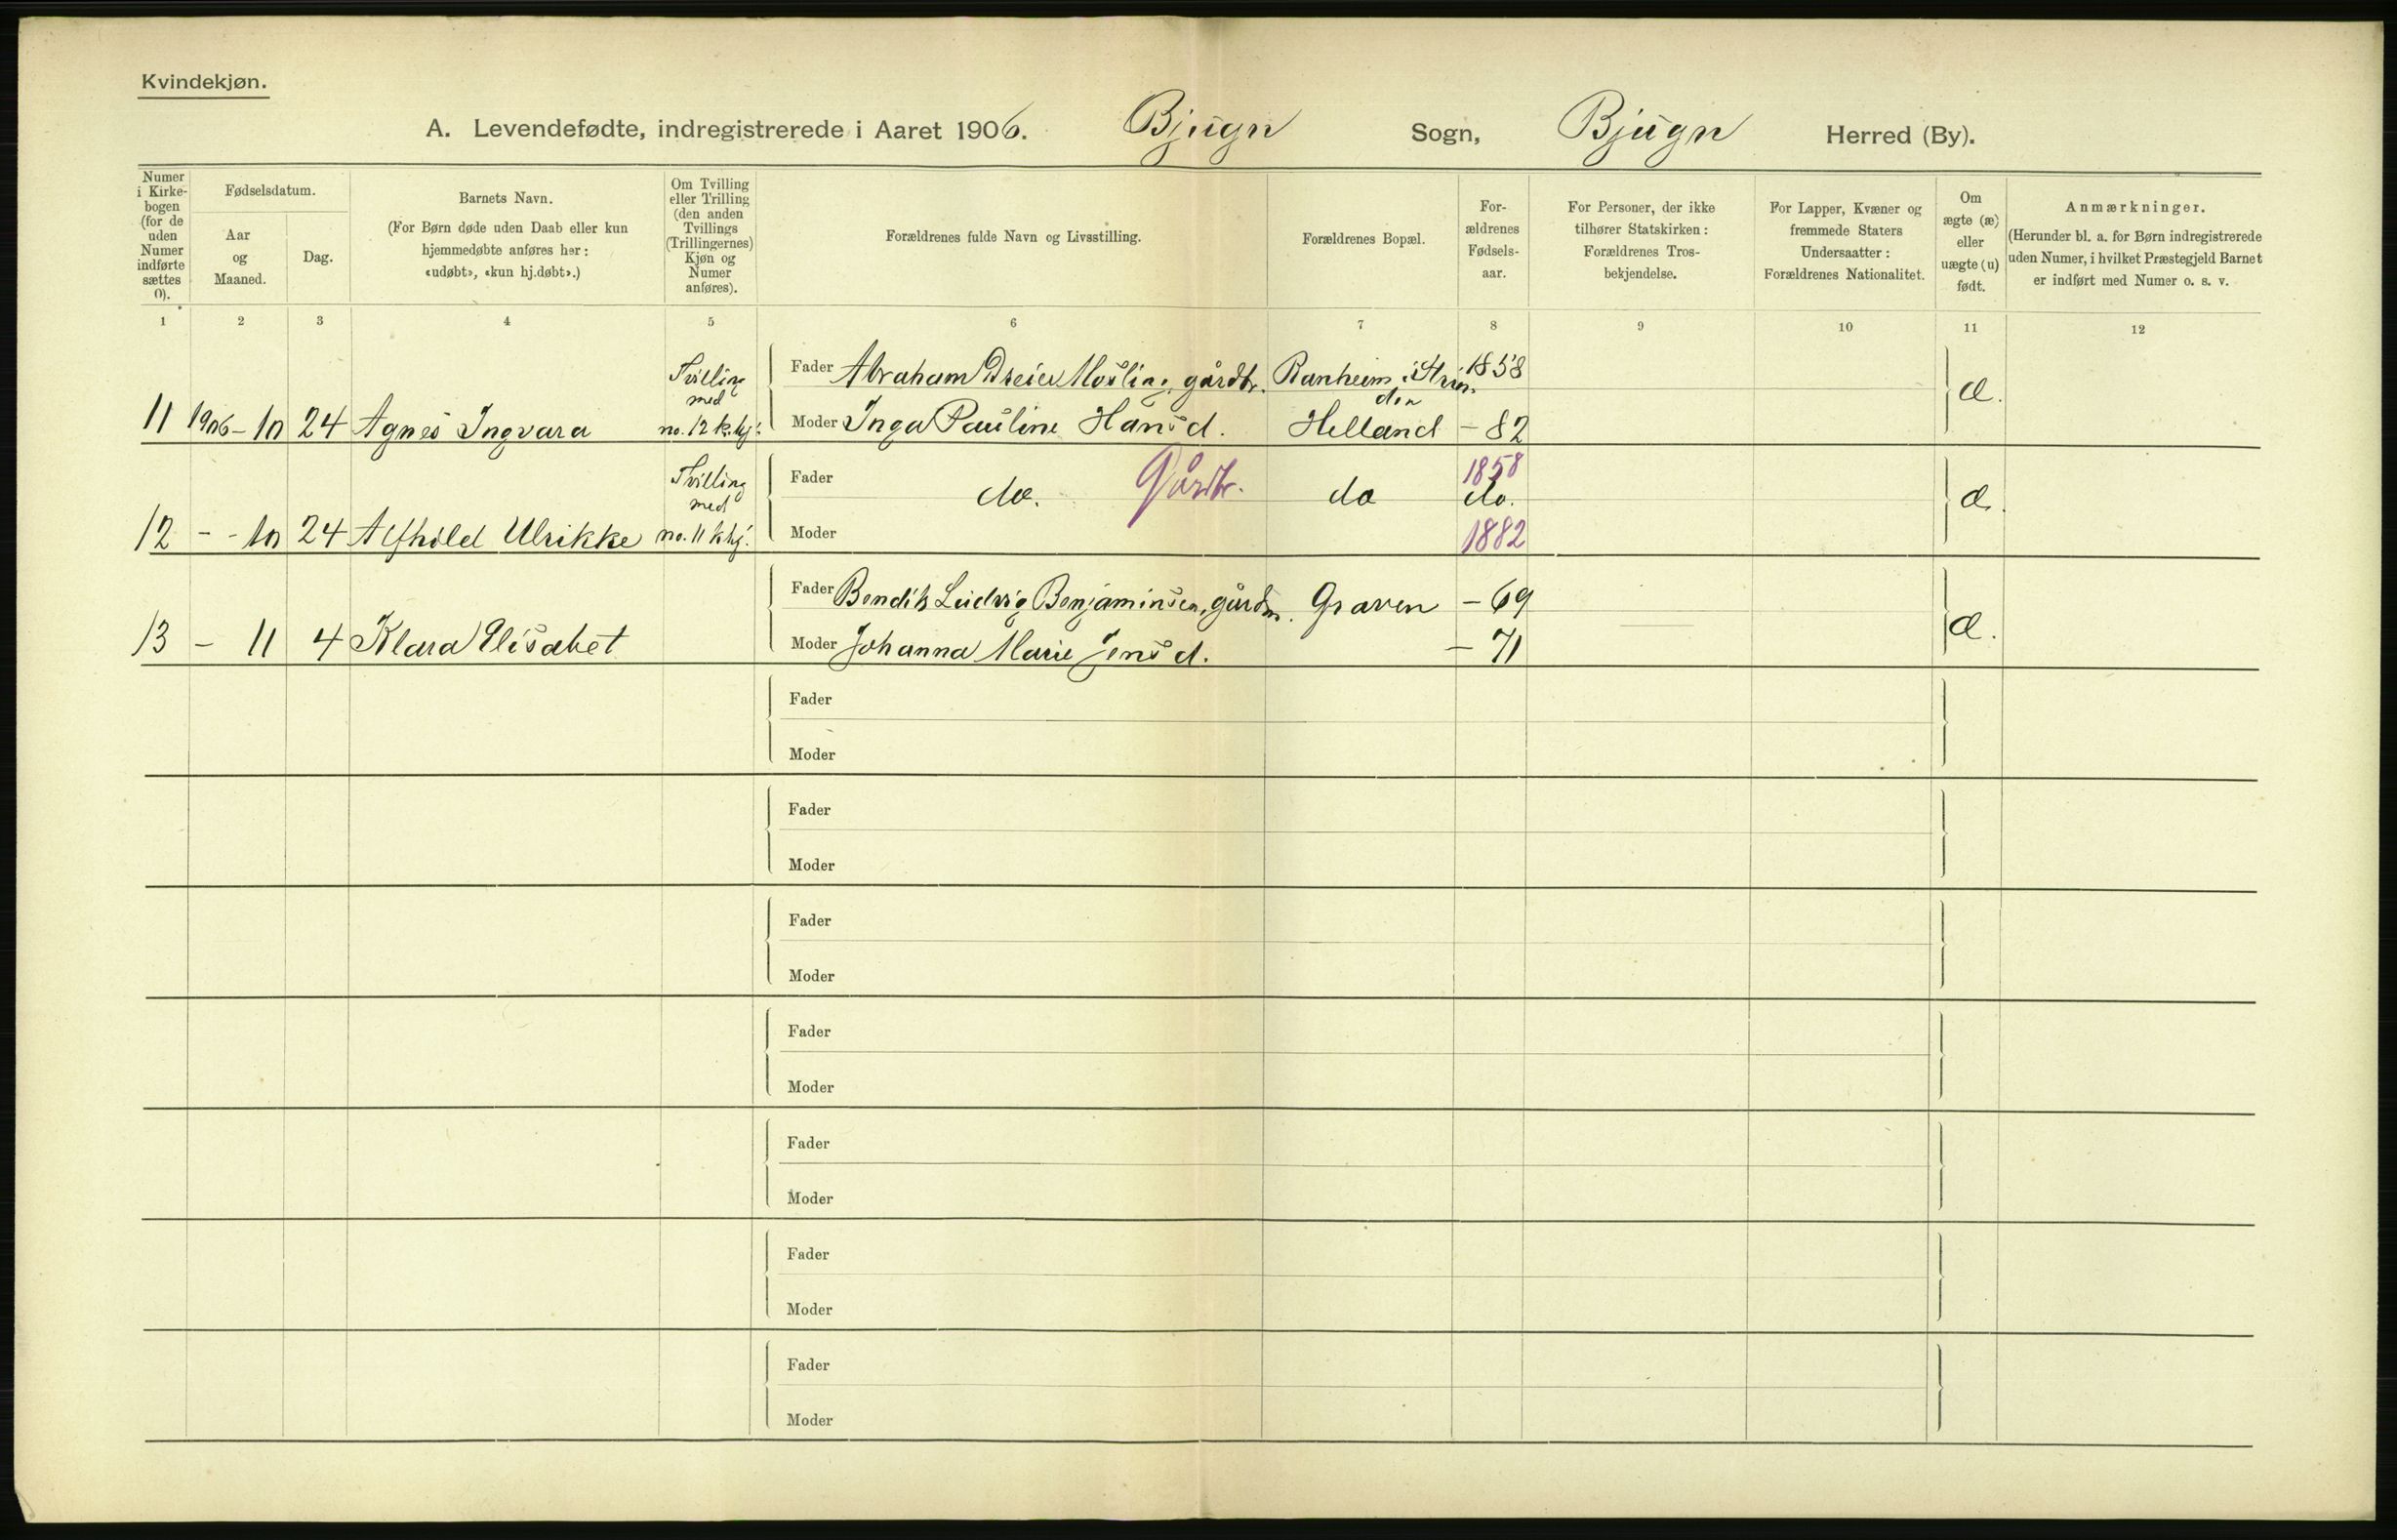 Kvindekjøn.
A. Levendefødte, indregistrerede i Aaret 1906. Bjugn Sogn, Bjugn Herred (By).
Numer i Kirkebogen (for de uden Numer indførte sættes 0).
Fødselsdatum.
Aar og Maaned.
Dag.
Barnets Navn.
(For Børn døde uden Daab eller kun hjemmedøbte anføres her: «udøbt», «kun hj.døbt».)
Om Tvilling eller Trilling (den anden Tvillings (Trillingernes) Kjøn og Numer anføres).
Forældrenes fulde Navn og Livsstilling.
Forældrenes Bopæl.
Forældrenes Fødselsaar.
For Personer, der ikke tilhører Statskirken: Forældrenes Trosbekjendelse.
For Lapper, Kvæner og fremmede Staters Undersaatter: Forældrenes Nationalitet.
Om ægte (æ) eller uægte (u) født.
Anmærkninger.
(Herunder bl. a. for Børn indregistrerede uden Numer, i hvilket Præstegjeld Barnet er indført med Numer o. s. v.
1 2 3 4 5 6 7 8 9 10 11 12
Tvilling med Fader Abraham Dreier Mosling, gårdbr. Ranheim, Strinden 1858 æ.
11 1906-10 24 Agnes Ingvara no. 12 k.kj. Moder Inga Pauline Hansd. Helland - 82
Tvilling med Fader do. Gårdbr. do 1858 do. æ.
12 - - 10 24 Alfhild Ulrikke no. 11 k.kj. Moder 1882
Fader Bendik Ludvig Benjaminsen, gårdm. Graven - 69 æ.
13 - 11 4 Klara Elisabet Moder Johanna Marie Jensd. - 71
Fader
Moder
Fader
Moder
Fader
Moder
Fader
Moder
Fader
Moder
Fader
Moder
Fader
Moder